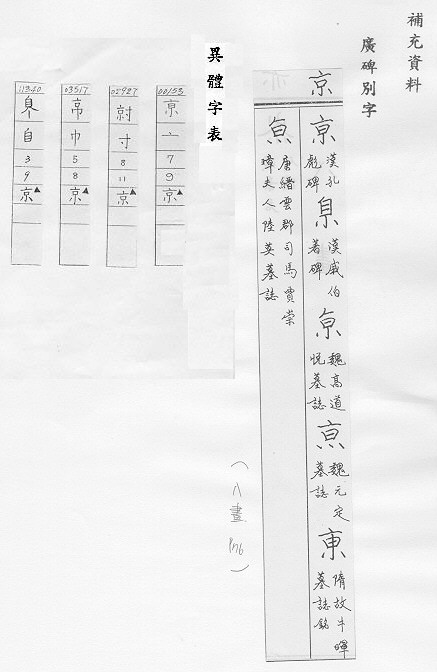 補充資料
廣碑別字
京
亰 漢孔彪碑 㝳 漢戚伯著碑 亰 魏高道悅墓誌 魏元定墓誌 隋故牛暉墓誌銘
唐縉雲郡司馬賈崇暐夫人陸英墓誌
（八畫 P176）
異體字表
00153
亰
亠
7
9
京▲
02927
寸
8
11
京▲
03517
巾
5
8
京▲
11340
自
3
9
京▲